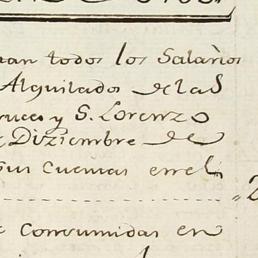 tan todos los Salarios
Alquilados de las
y S. Lorenzo
Diziembre de
sus Cuentas en el
Consumidas en